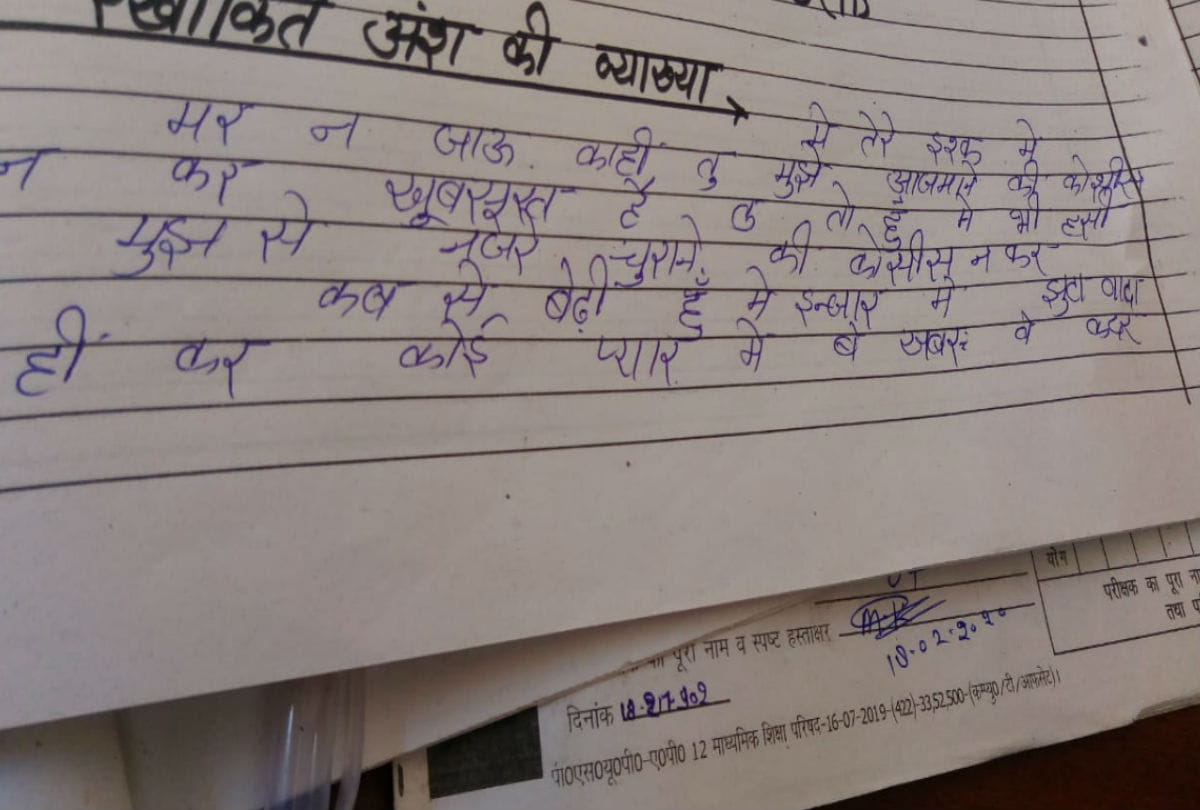 रेखांकित अंश की व्याख्या
मर न जाऊ काहीं तु से तेरे इश्क में
न कर मुझे आजमाने की कोशीस
खूबसूरत है तु तो हुँ मे भी हसी
मुझ से नजरे चुराने की कोसीस न कर
कब से बेढी हुँ मे इन्जार मे झुठा वादा
ही कर कोई प्यार मे बे खबरः वे कदर
योग
परीक्षक का पूरा ना
तथा प
का पूरा नाम व स्पष्ट हस्ताक्षर
18.02.2020
दिनांक
पी0एस0यू0पी0-ए0पी0 12 माध्यमिक शिक्षा परिषद-16-07-2019-(422)-33,52,500-(कम्प्यू0/टी/आफसेट)।